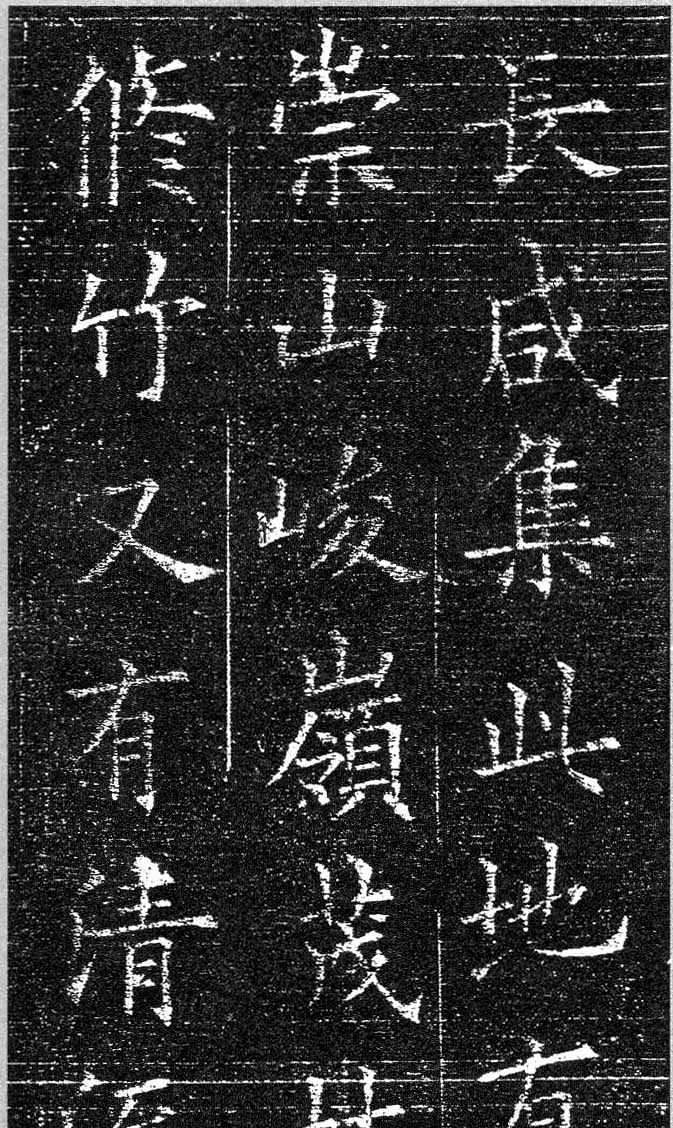 長咸集此地有
崇山峻嶺茂
修竹又有清